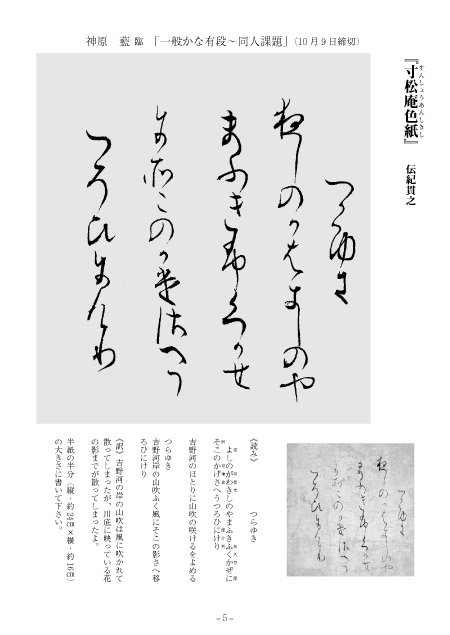 神原　藍 臨 「一般かな有段～同人課題」(10月9日締切)
『寸松庵色紙』 伝紀貫之
すんしょうあんしきし
つらゆき
よしのかはきしのや
まふきふくかせ
にそこのかけさへう
つろひにけり
《読み》
つらゆき
よしのがわきしのやまぶきふくかぜに
そこのかげさへうつろひにけり
吉野河のほとりに山吹の咲けるをよめる
つらゆき
吉野河岸の山吹ふく風にそこの影さへ移
ろひにけり
《訳》吉野河の岸の山吹は風に吹かれて
散ってしまったが、川底に映っている花
の影までが散ってしまったよ。
半紙の半分（縦・約24㎝×横・約16㎝）
の大きさに書いて下さい。
－5－